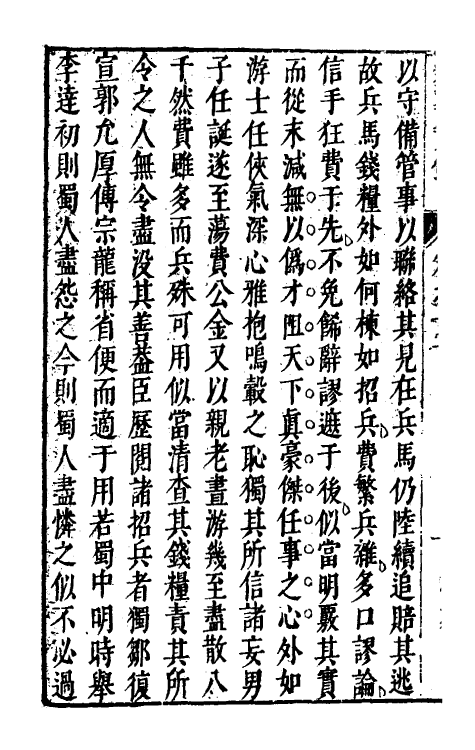 以守備管事以聯絡其見在兵馬仍陸續追賠其逃
故兵馬錢糧外如何棟如招兵費繁兵雜多口謬論
信手狂費于先不免飾辭謬遮于後似當明覈其實
而從末減無以偽才阻天下真豪傑任事之心外如
游士任俠氣深心雅抱鳴轂之恥獨其所信諸妄男
子任誕遂至蕩費公金又以親老晝游幾至盡散八
千然費雖多而兵殊可用似當清查其錢糧責其所
令之人無令盡沒其善葢臣歷閱諸招兵者獨鄒復
宣郭允厚傳宗龍稱省便而適于用若蜀中明時舉
李達初則蜀人盡怨之今則蜀人盡憐之似不必過